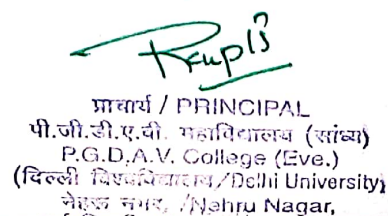 प्राचार्य / PRINCIPAL
पी.जी.डी.ए.वी. महाविद्यालय (सांध्य)
P.G.D.A.V. College (Eve.)
(दिल्ली विश्वविद्यालय/Delhi University)
नेहरू नगर, /Nehru Nagar,